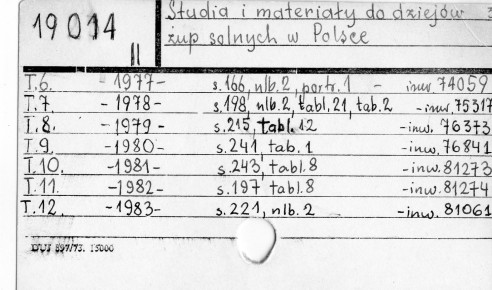 19014
II
Studia i materiały do dziejów
żup solnych w Polsce
T.6. -1977- s.166, nlb.2, portr.1 - inw. 74059
T.7. -1978- s.198, nlb.2, tabl.21, tab.2 -inw. 75317
T.8. -1979- s.215, tabl.12 -inw. 76373
T.9. -1980- s.241, tab.1 -inw. 76841
T.10. -1981- s.243, tabl.8 -inw. 81273
T.11. -1982- s.197 tabl.8 -inw. 81274
T.12. -1983- s.221, nlb.2 -inw. 81061
897/73. 15000